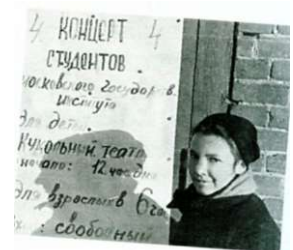 4 КОНЦЕРТ 4
СТУДЕНТОВ
московского государств.
института
Для детей
Кукольный театр
начало: 12 час дня
Для взрослых 6
свободный